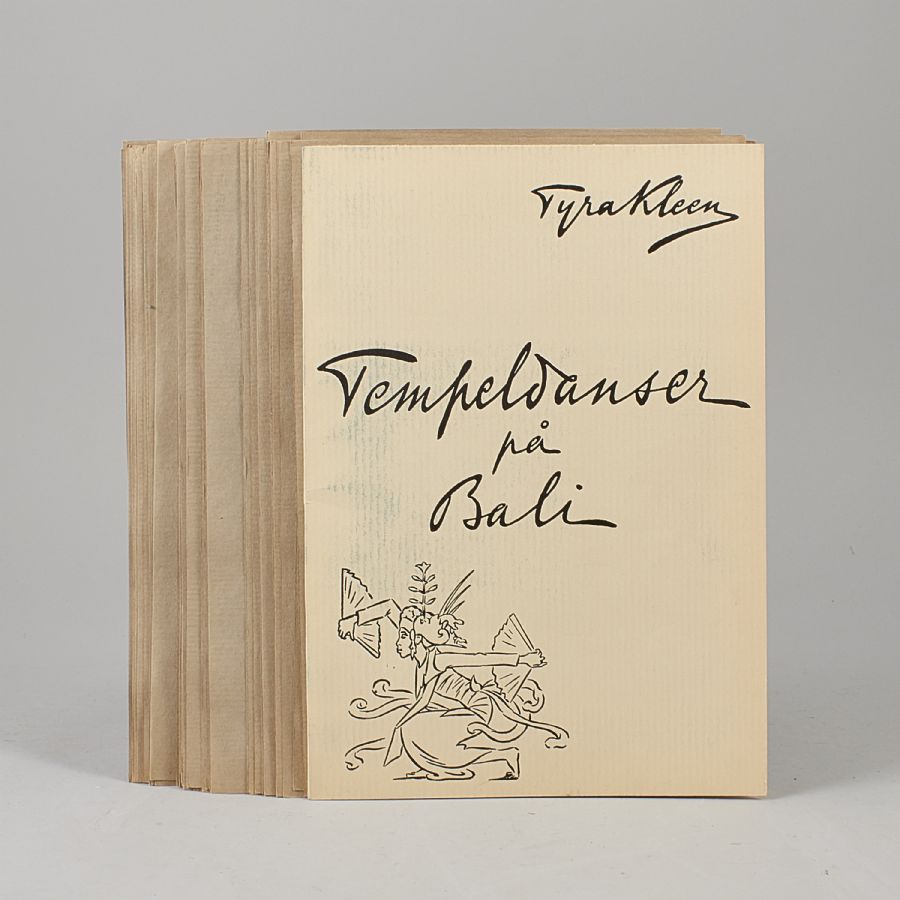 Tyra Kleen
Tempeldanser
på
Bali